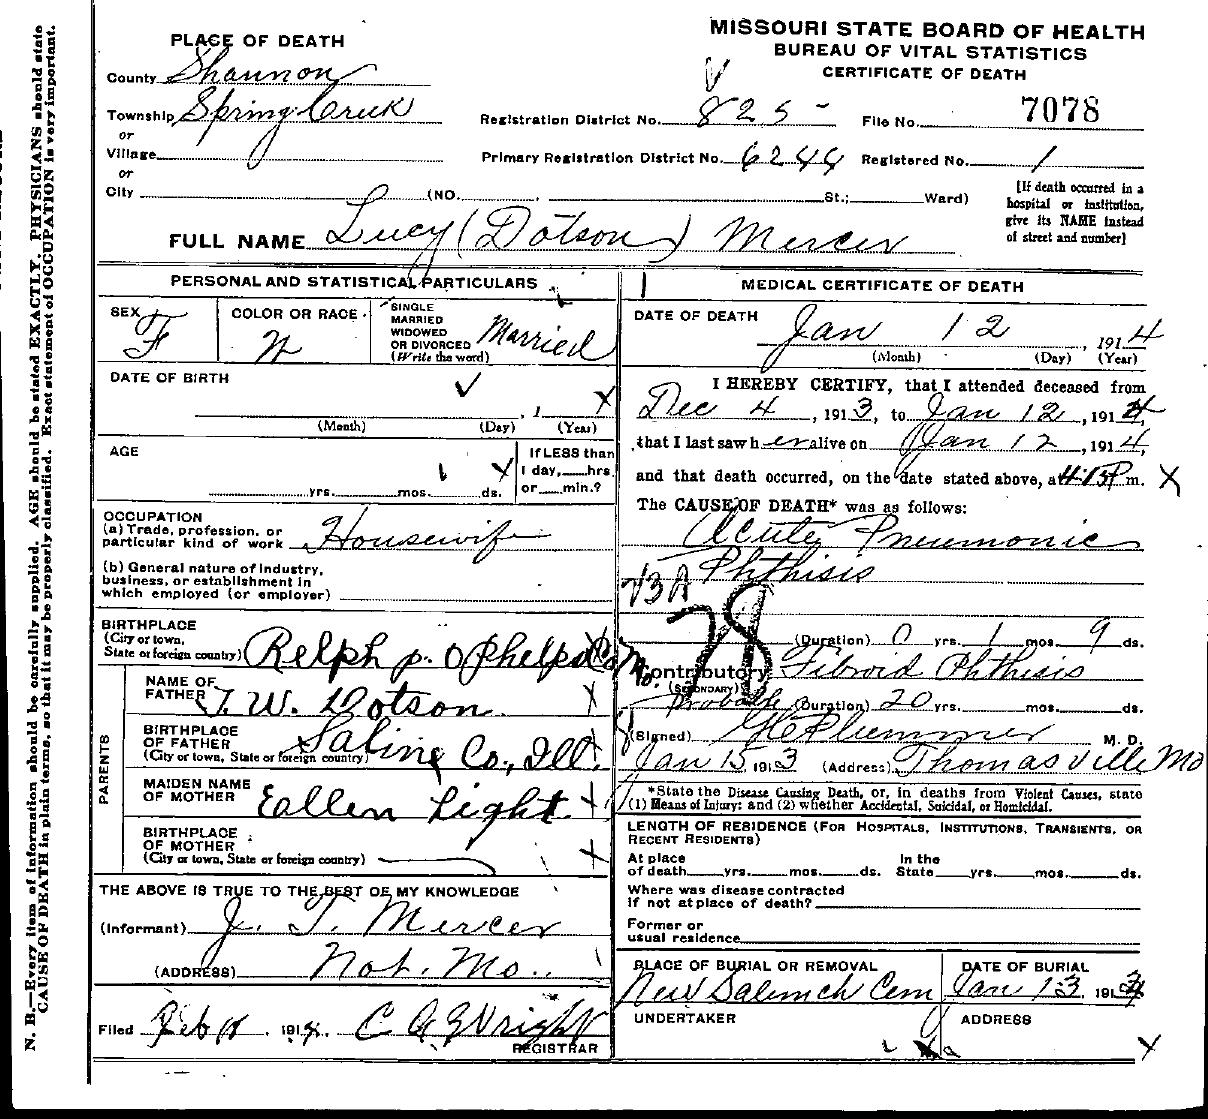 MISSOURI STATE BOARD OF HEALTH
BUREAU OF VITAL STATISTICS
CERTIFICATE OF DEATH
PLACE OF DEATH
County Shannon
Township Spring Creek
or
Village
or
City (NO. , St.; Ward)
Registration District No. 825 - File No. 7078
Primary Registration District No. 6244 Registered No. 1
[If death occurred in a
hospital or institution,
give its NAME instead
of street and number]
FULL NAME Lucy (Dotson) Mercer
PERSONAL AND STATISTICAL PARTICULARS
SEX F
COLOR OR RACE W
SINGLE
MARRIED
WIDOWED
OR DIVORCED Married
(Write the word)
DATE OF BIRTH
, 1
(Month) (Day) (Year)
AGE
yrs. mos. ds.
If LESS than
1 day, hrs.
or min.?
OCCUPATION
(a) Trade, profession, or
particular kind of work Housewife
(b) General nature of industry,
business, or establishment in
which employed (or employer)
BIRTHPLACE
(City or town,
State or foreign country) Relph p. o Phelps Co Mo.
PARENTS
NAME OF
FATHER T. W. Dotson
BIRTHPLACE
OF FATHER
(City or town, State or foreign country) Saline Co., Ill.
MAIDEN NAME
OF MOTHER Eallen Light
BIRTHPLACE
OF MOTHER
(City or town, State or foreign country)
THE ABOVE IS TRUE TO THE BEST OF MY KNOWLEDGE
(Informant) J. T. Mercer
(ADDRESS) Not. Mo.
Filed Feb , 1914. REGISTRAR
MEDICAL CERTIFICATE OF DEATH
DATE OF DEATH
Jan 12 , 1914
(Month) (Day) (Year)
I HEREBY CERTIFY, that I attended deceased from
Dec 4 , 1913, to Jan 12 , 1914,
that I last saw h er alive on Jan 12 , 1914,
and that death occurred, on the date stated above, at 4:15 P m.
The CAUSE OF DEATH* was as follows:
Acute Pneumonic
Phthisis
78
(Duration) 0 yrs. 1 mos. 9 ds.
Contributory Fibroid Phthisis
(SECONDARY)
Probable (Duration) 20 yrs. mos. ds.
(Signed) Plummer M. D.
Jan 15 1913 (Address) Thomasville Mo
*State the Disease Causing Death, or, in deaths from Violent Causes, state
(1) Means of Injury; and (2) whether Accidental, Suicidal, or Homicidal.
LENGTH OF RESIDENCE (FOR HOSPITALS, INSTITUTIONS, TRANSIENTS, OR
RECENT RESIDENTS)
At place In the
of death yrs. mos. ds. State yrs. mos. ds.
Where was disease contracted
if not at place of death?
Former or
usual residence
PLACE OF BURIAL OR REMOVAL DATE OF BURIAL
New Salem ch Cem Jan 13, 191
UNDERTAKER ADDRESS
N. B.—Every item of information should be carefully supplied. AGE should be stated EXACTLY. PHYSICIANS should state
CAUSE OF DEATH in plain terms, so that it may be properly classified. Exact statement of OCCUPATION is very important.